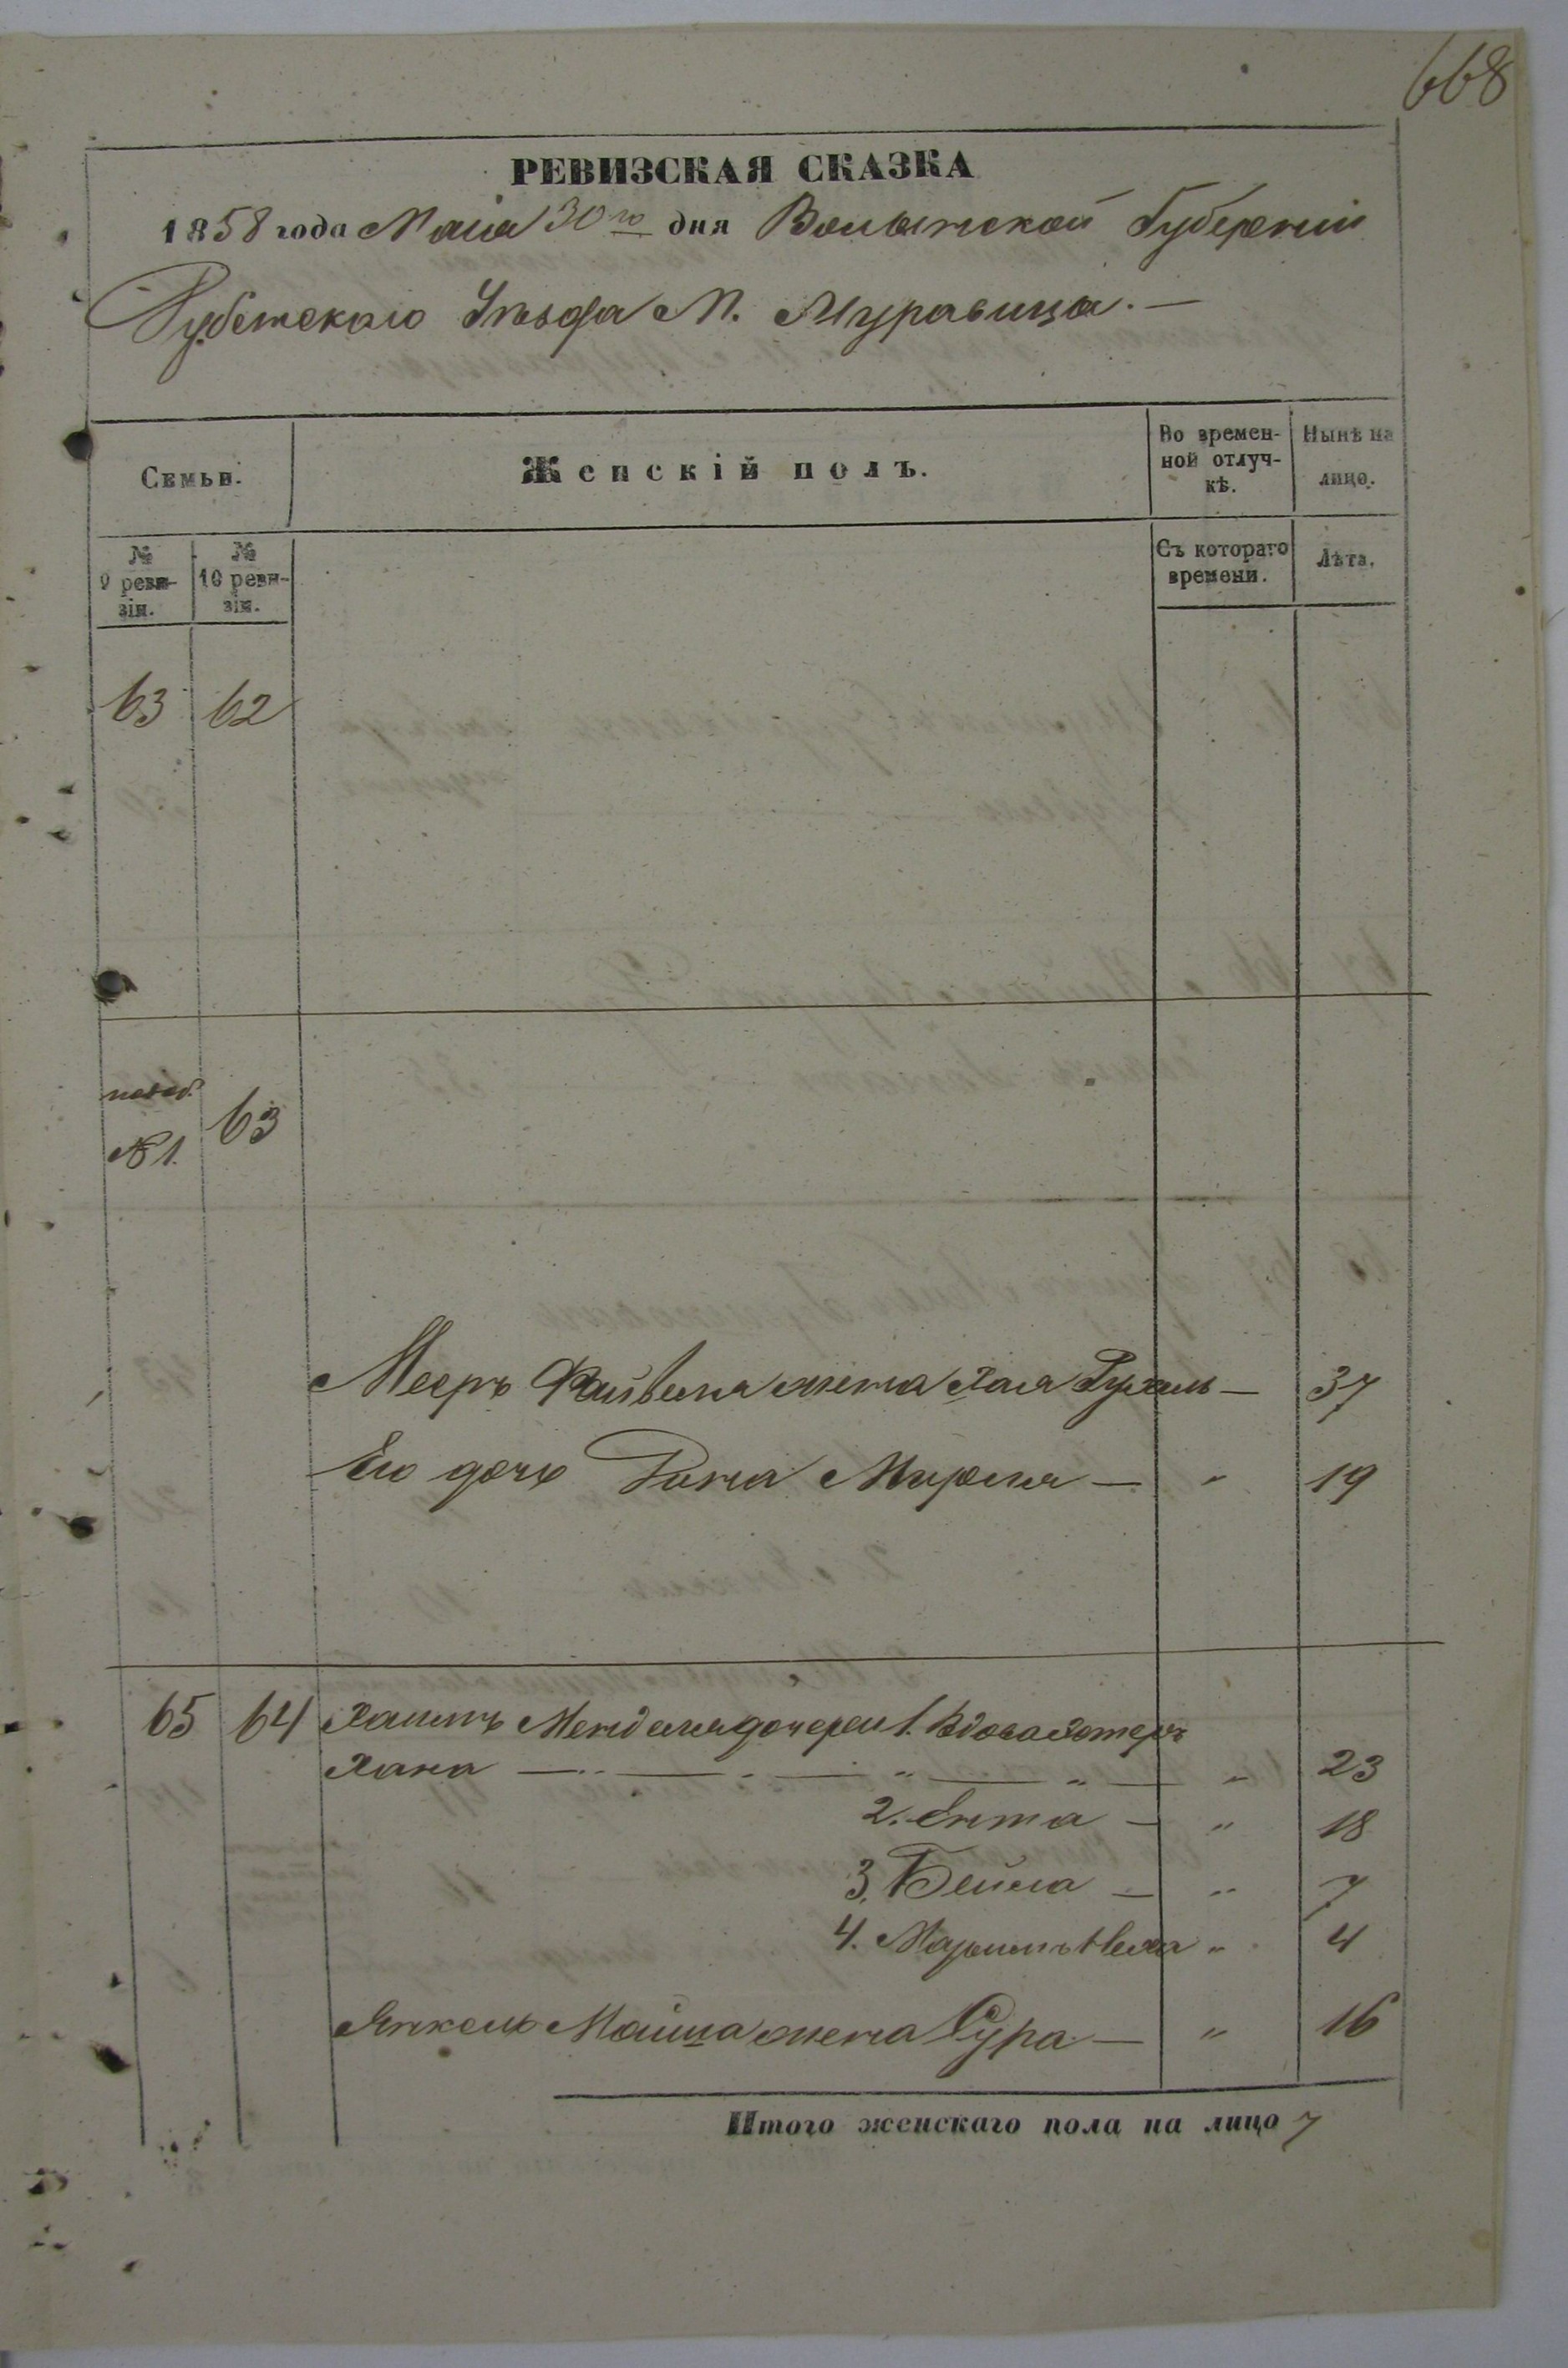 668
РЕВИЗСКАЯ СКАЗКА
1858 года Маія 30го дня Волынской Губерніи
Дубенскаго Уѣзда М. Муравица. —
Семьи.
Женскій полъ.
Во времен-
ной отлуч-
кѣ.
Нынѣ на
лицо.
№
9 реви-
зіи.
№
10 реви-
зіи.
Съ котораго
времени.
Лѣта.
63 62
63
№ 1.
Мееръ Файвеля жена Хая Рухль — 37
Его дочь Рина Миреля — " 19
65 64 Хаимъ Менделя дочери 1. Вдова Эстеръ
Хана — " — " — " — " — " 23
2. Ента — " 18
3. Бейла — " 7
4. Марьимъ Неха " 4
Янкель Мойша жена Сура — " 16
Итого женскаго пола на лицо 7